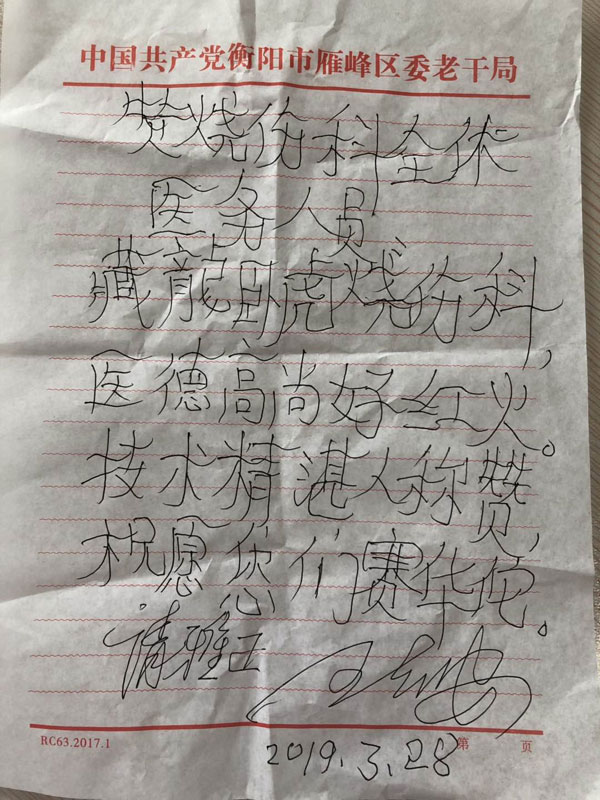 中国共产党衡阳市雁峰区委老干局
赞烧伤科全体
医务人员
藏龍卧虎烧伤科，
医德高尚好红火。
技术精湛人称赞，
祝愿您们赛华佗。
请雅正
2019.3.28
RC63.2017.1
第 页